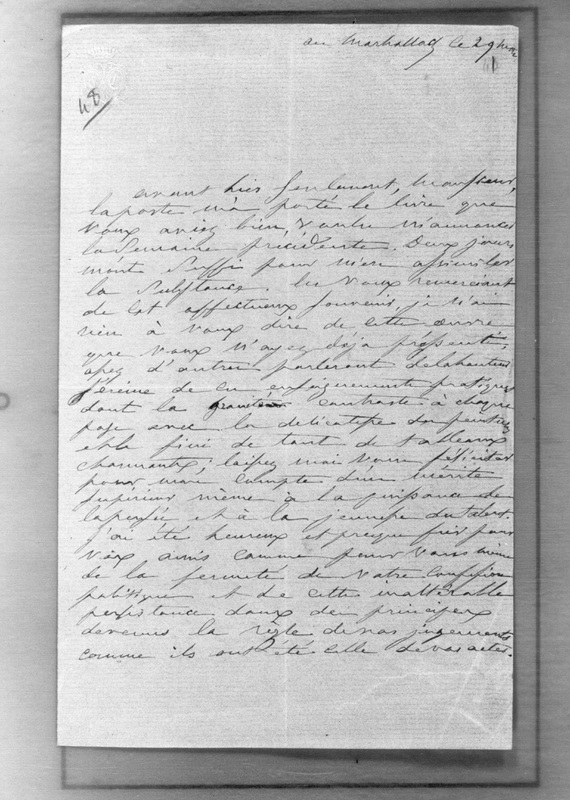 au Marhallach le 2 9bre
48
avant hier seulement, Monsieur,
la poste m'a porté le livre que
vous aviez bien voulu m'annoncer
la semaine précédente. Deux jours
m'ont suffi pour m'en assimiler
la substance. En vous remerciant
de cet affectueux souvenir, je n'ai
rien à vous dire de cette œuvre
que vous n'ayez déjà pressenti;
assez d'autres parleront de la hauteur
sereine de ces enseignements pratiques
dont la contraste à chaque
page avec la délicatesse des peintures
et le fini de tant de tableaux
charmants; laissez moi vous féliciter
pour mon compte d'un mérite
supérieur même à la puissance de
la pensée et à la jeunesse du talent.
J'ai été heureux et presque fier pour
vos amis comme pour vous même
de la fermeté de votre confession
politique et de cette inaltérable
persistance dans des principes
devenus la règle de vos jugements
comme ils ont été celle de vos actes.